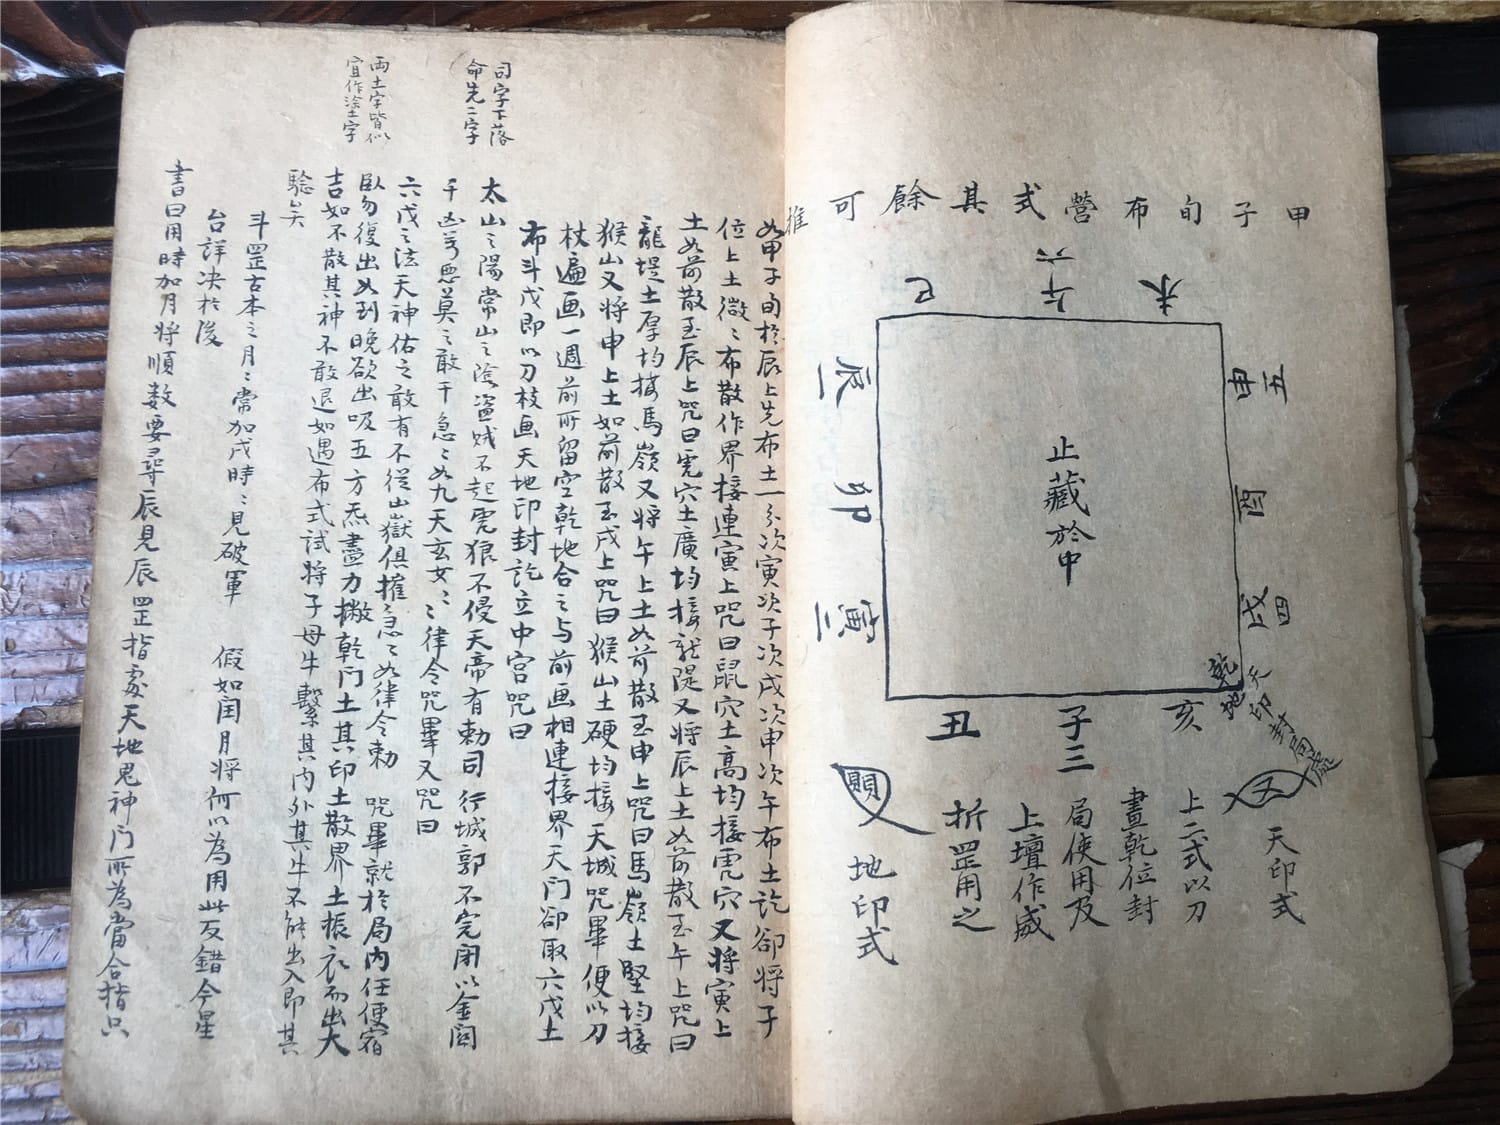 甲子旬布營式其餘可推
未
午六
巳
申五
酉
戌四
辰一
卯
寅二
止藏於中
亥
子三
丑
乾
天地印封局處
天印式
上二式以刀
畫乾位封
局使用及
上壇作威
折罡用之
地印式
如甲子旬於辰上先布土一分次寅次子次戌次申次午布土訖卻將子
位上土微々布散作界接連寅上咒曰鼠穴土高均接虎穴又將寅上
土如前散至辰上咒曰虎穴土廣均接龍隄又將辰上土如前散至午上咒曰
龍堤土厚均接馬嶺又將午上土如前散至申上咒曰馬嶺土堅均接
猴山又將申上土如前散至戌上咒曰猴山土硬均接天城咒畢便以刀
杖遍画一週前所留空乾地合之与前画相連接界天门卻取六戊土
布斗戊即以刀枝画天地印封訖立中宮咒曰
太山之陽常山之陰盜賊不起虎狼不侵天帝有勅司行城郭不完閉以金関
千凶万惡莫之敢干急々如九天玄女々々律令咒畢又咒曰
六戊之法天神佑之敢有不從山嶽俱摧急々如律令勅 咒畢就於局內任便宿
臥勿復出如到晚欲出吸五方炁盡力撇乾门土其印土散界土振衣而出大
吉如不散其神不敢退如遇布式試將子母牛繫其內外其牛不能出入即其
驗矣
斗罡古本之月々常加戌時々見破軍 假如閏月將何以為用此反錯今星
台詳决於後
書曰用時加月將順数要尋辰見辰罡指處天地鬼神门所為當合指只
司字下落
命先二字
両土字皆似
宜作塗土字